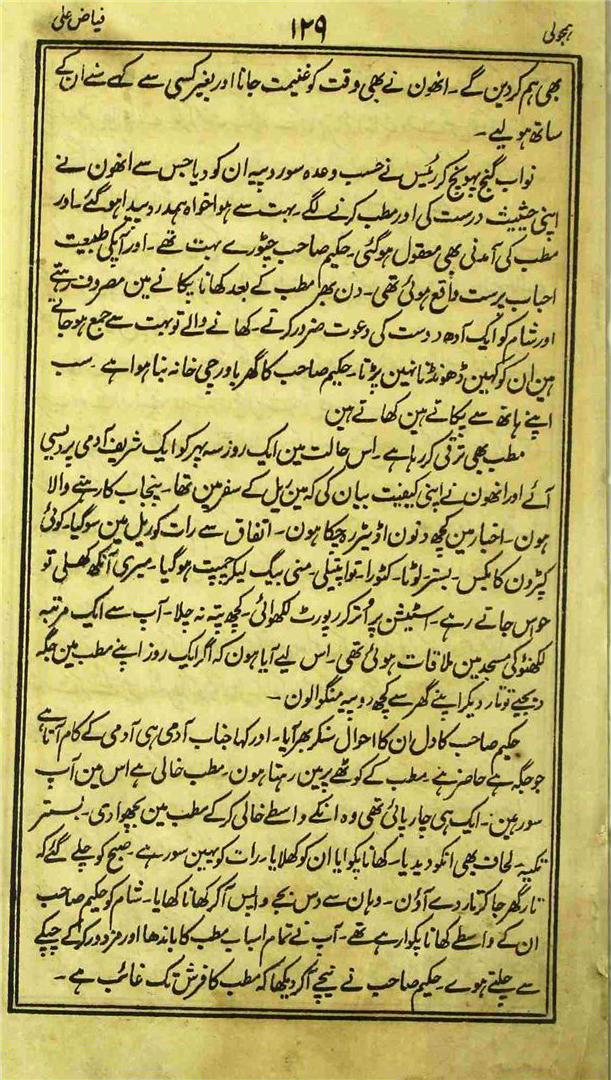 ہمجولی ۱۲۹ فیاض علی
بھی ہم کردین گے۔ انھون نے بھی وقت کو غنیمت جانا اور بغیر کسی سے کہے سنے ان کے
ساتھ ہولیے۔
نواب گنج پہونچ کر رئیس نے حسب وعدہ سو روپیہ ان کو دیا جس سے انھون نے
اپنی حیثیت درست کی اور مطب کرنے لگے۔ بہت سے ہواخواہ ہمدرد پیدا ہوگئے۔ اور
مطب کی آمدنی بھی معقول ہوگئی۔ حکیم صاحب چٹورے بہت تھے۔ اور آپکی طبیعت
احباب پرست واقع ہوئی تھی۔ دن بھر مطب کے بعد کھانا پکانے مین مصروف رہتے
اور شام کو ایک آدھ دوست کی دعوت ضرور کرتے۔ کھانے والے تو بہت سے جمع ہوجاتے
ہین ان کو کہین ڈھونڈنا نہین پڑتا۔ حکیم صاحب کا گھر باورچی خانہ بنا ہوا ہے۔ سب
اپنے ہاتھ سے پکاتے ہین کھاتے ہین
مطب بھی ترقی کر رہا ہے۔ اس حالت مین ایک روز سہ پہر کو ایک شریف آدمی پردیسی
آئے اور انھون نے اپنی کیفیت بیان کی کہ مین ریل کے سفر مین تھا۔ پنجاب کا رہنے والا
ہون۔ اخبار مین کچھ دنون اڈیٹر رہ چکا ہون۔ اتفاق سے رات کو ریل مین سوگیا۔ کوئی
کپڑون کا بکس۔ بستر۔ لوٹا۔ کٹورا۔ توا پتیلی۔ منی بیگ لیکر چمپت ہوگیا۔ میری آنکھ کھلی تو
حواس جاتے رہے۔ اسٹیشن پر اُتر کر رپورٹ لکھوائی۔ کچھ پتہ نہ چلا۔ آپ سے ایک مرتبہ
لکھنؤ کی مسجد مین ملاقات ہوئی تھی۔ اس لیے آیا ہون کہ اگر ایک روز اپنے مطب مین جگہ
دیجیے تو تار دیکر اپنے گھر سے کچھ روپیہ منگوالون۔
حکیم صاحب کا دل ان کا احوال سنکر بھر آیا۔ اور کہا جناب آدمی ہی آدمی کے کام آتا ہے
جو جگہ ہے حاضر ہے۔ مطب کے کوٹھے پر مین رہتا ہون۔ مطب خالی ہے اس مین آپ
سو رہین۔ ایک ہی چارپائی تھی وہ انکے واسطے خالی کرکے مطب مین بچھوا دی۔ بستر
تکیہ۔ لحاف بھی انکو دیدیا۔ کھانا پکوایا ان کو کھلایا۔ رات کو یہین سو رہے۔ صبح کو چلے گئے کہ
تار گھر جا کر تار دے آؤن۔ وہان سے دس بجے واپس آکر کھانا کھایا۔ شام کو حکیم صاحب
ان کے واسطے کھانا پکوا رہے تھے۔ آپ نے تمام اسباب مطب کا باندھا اور مزدور کرکے چپکے
سے چلتے ہوے۔ حکیم صاحب نے نیچے آکر دیکھا کہ مطب کا فرش تک غائب ہے۔